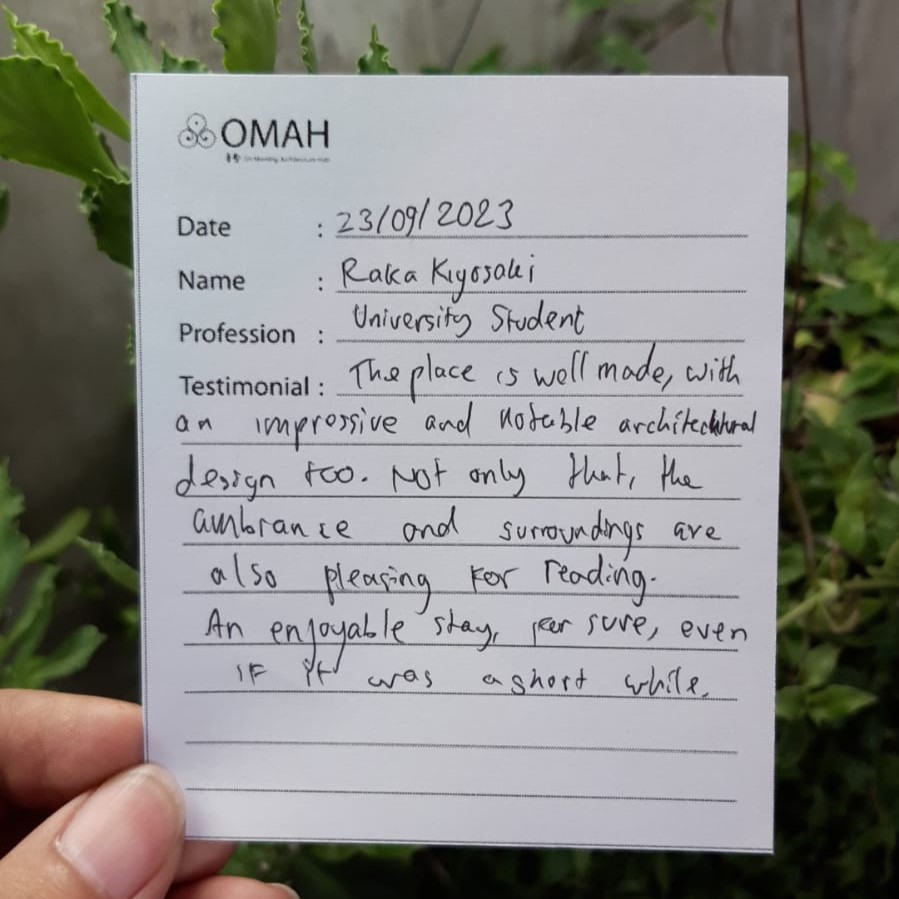 OMAH
Date : 23/09/2023
Name : Raka Kiyosaki
Profession : University Student
Testimonial : The place is well made, with
an impressive and notable architectural
design too. Not only that, the
ambiance and surroundings are
also pleasing for reading.
An enjoyable stay, for sure, even
if it was a short while.